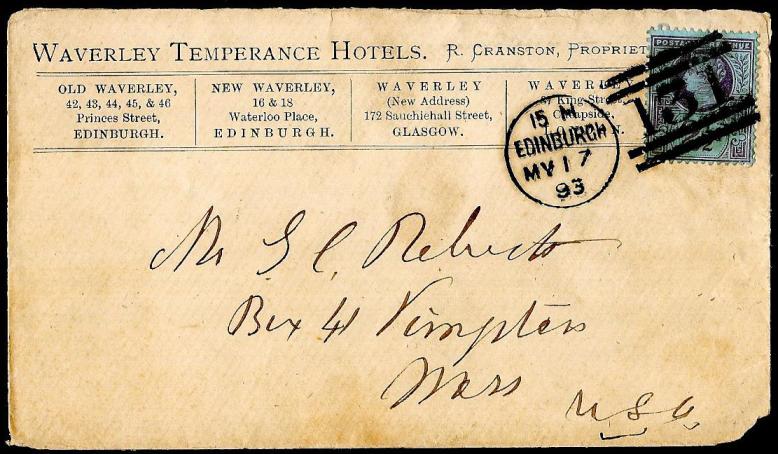 WAVERLEY TEMPERANCE HOTELS. R. CRANSTON, PROPRIET
OLD WAVERLEY,
42, 43, 44, 45, & 46
Princes Street,
EDINBURGH.
NEW WAVERLEY,
16 & 18
Waterloo Place,
EDINBURGH.
WAVERLEY
(New Address)
172 Sauchiehall Street,
GLASGOW.
WAVERLEY
King Street,
Cheapside,
N.
POSTAGE REVENUE
131
15 M
EDINBURGH
MY 17
93
Mr G C Roberts
Box 41
Mass
U.S.A.